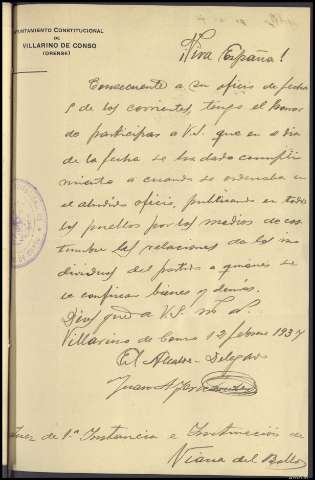 AYUNTAMIENTO CONSTITUCIONAL
DE
VILLARINO DE CONSO
(ORENSE)
¡Viva España!
Consecuente a su oficio de fecha
9 de los corrientes, tengo el honor
de participar a V.S. que en el dia
de la fecha se ha dado cumpli
miento a cuando se ordenaba en
el aludido oficio, publicando en todos
los pueblos por los medios de cos
tumbre las relaciones de los in
dividuos del partido a quienes se
le confiscan bienes y demás.
Dios gude a V.S. m. a.
Villarino de Conso 12 febrero 1937
El Alcalde-Delegado
Juan A.
Juez de 1ª Instancia e Instrucción de
Viana del Bollo